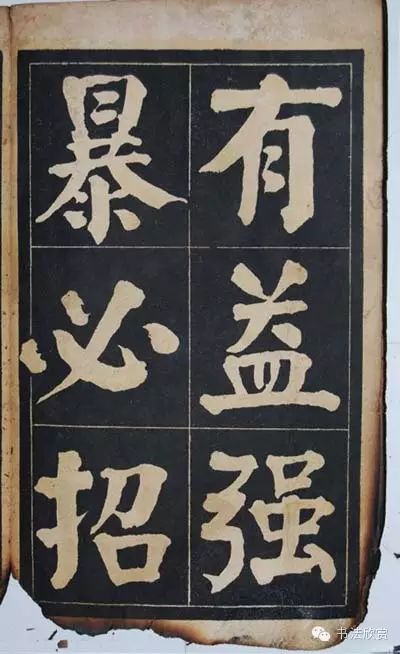 有益强
暴必招
书法欣赏